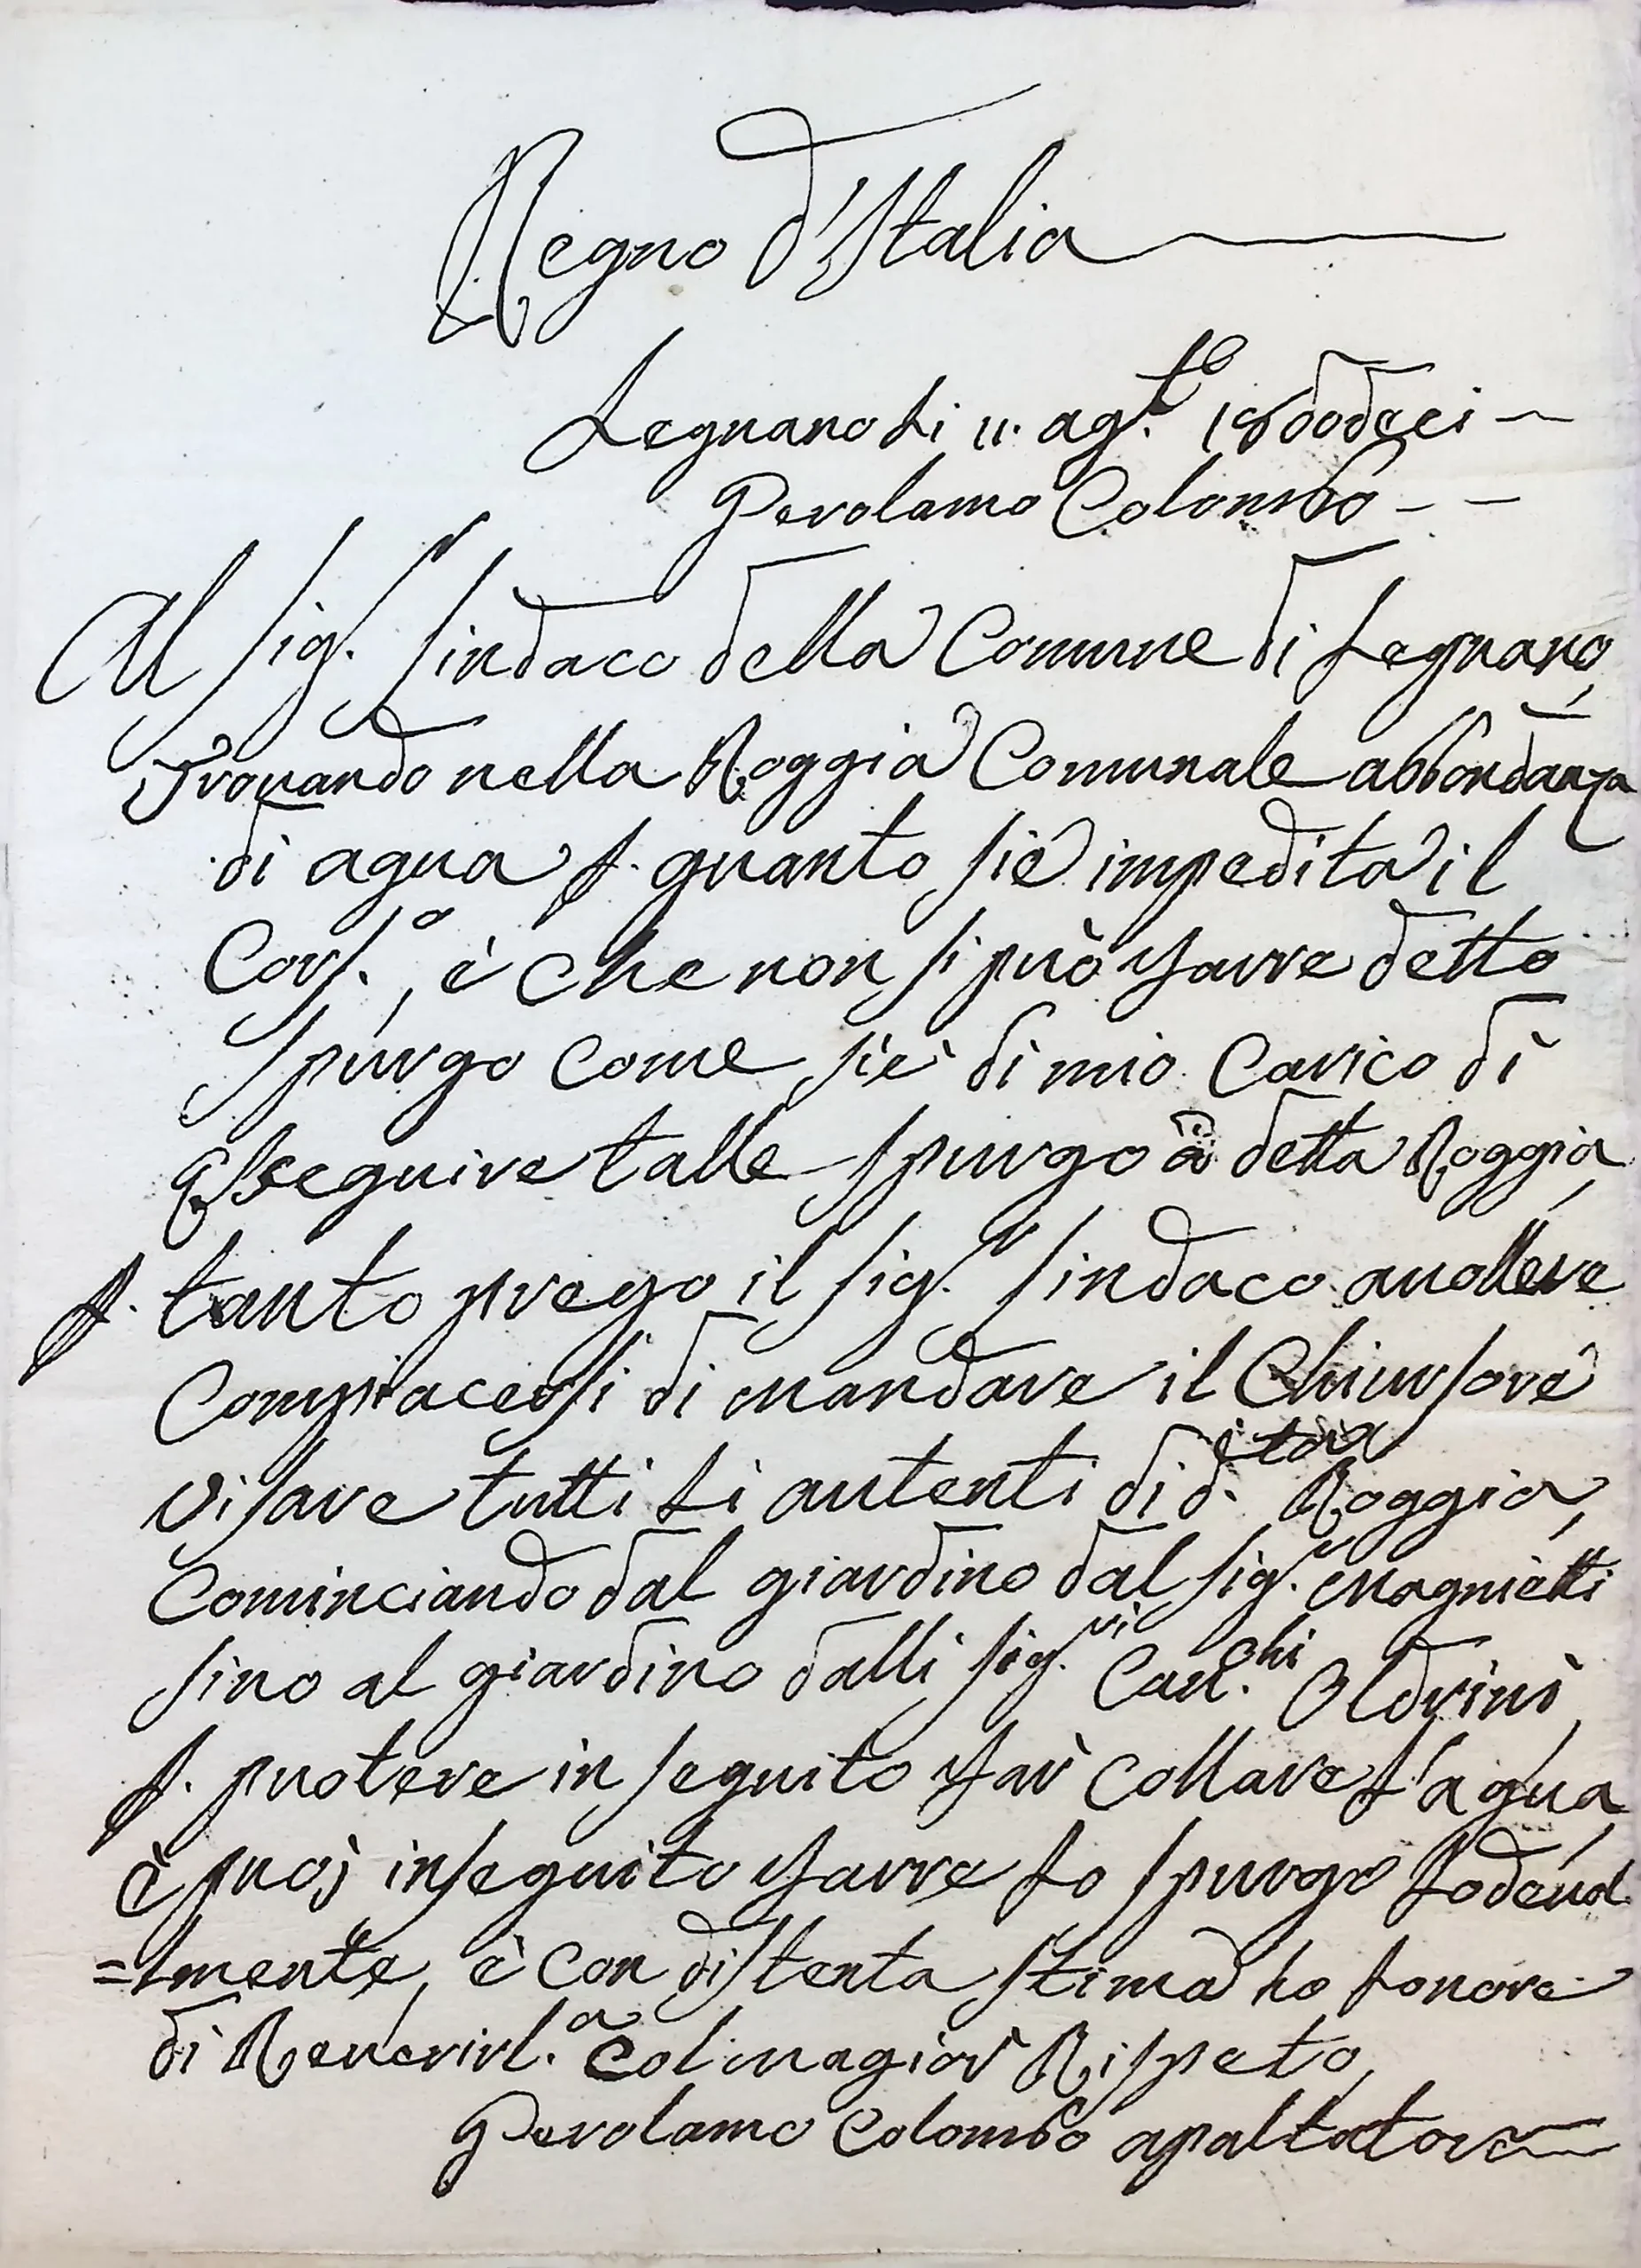 Regno d'Italia
Legnano Li 11. ag.to 18dodeci
Gerolamo Colombo
Al Sig.r Sindaco della Comune di Legnano,
Trovando nella Roggia Comunale abbondanza
di aqua p. quanto siè impedita il
Cors.o, è che non si può farre detto
Spurgo come, siè di mio Carico di
Esseguire talle Spurgo à detta Roggia,
p. tanto prego il Sig.r Sindaco a vollere
Compiacersi di mandare il Chiursore
visare tutti Li autenti di d.ta Roggia,
Cominciando dal giardino dal Sig.r Magnietti
Sino al giardino dalli Sig.ri Oldrini
p. puotere in seguito far Collare L'aqua,
è puoj in seguito farre Lo Spurgo Lodeud
=lmente, è Con distenta Stima ho Lonore
di Reverirl.a Col magior Rispeto,
Gerolamo Colombo apaltatore